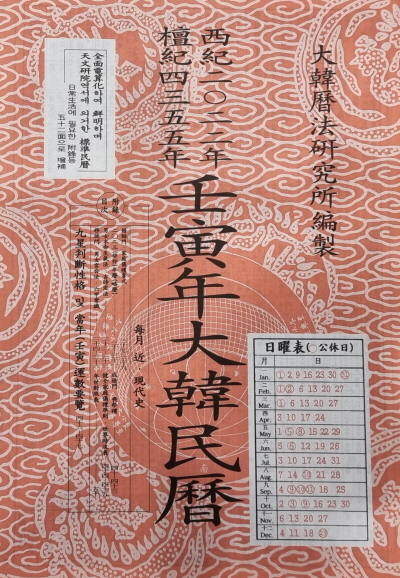 大韓曆法硏究所編製
西紀二〇二二年
檀紀四三五五年
壬寅年大韓民曆
全面電算化하여 鮮明하며
天文硏院역서에 의거한 標準民曆
日常生活에 필요한 附錄등
五十二面으로 增補
附錄
目次
九星判斷性格 및 當年(壬寅)運數要覽
每月 近 現代史
日曜表(○公休日)
月 日
一 Jan. ① 2 9 16 23 30 ㉛
二 Feb. ① ② 6 13 20 27
三 Mar. ① 6 13 20 27
四 Apr. 3 10 17 24
五 May 1 ⑤ ⑧ 15 22 29
六 Jun. 5 ⑥ 12 19 26
七 Jul. 3 10 17 24 31
八 Aug. 7 14 21 28
九 Sep. 4 ⑨ ⑩ ⑪ 18 25
十 Oct. 2 ③ ⑨ 16 23 30
十一 Nov. 6 13 20 27
十二 Dec. 4 11 18 ㉕